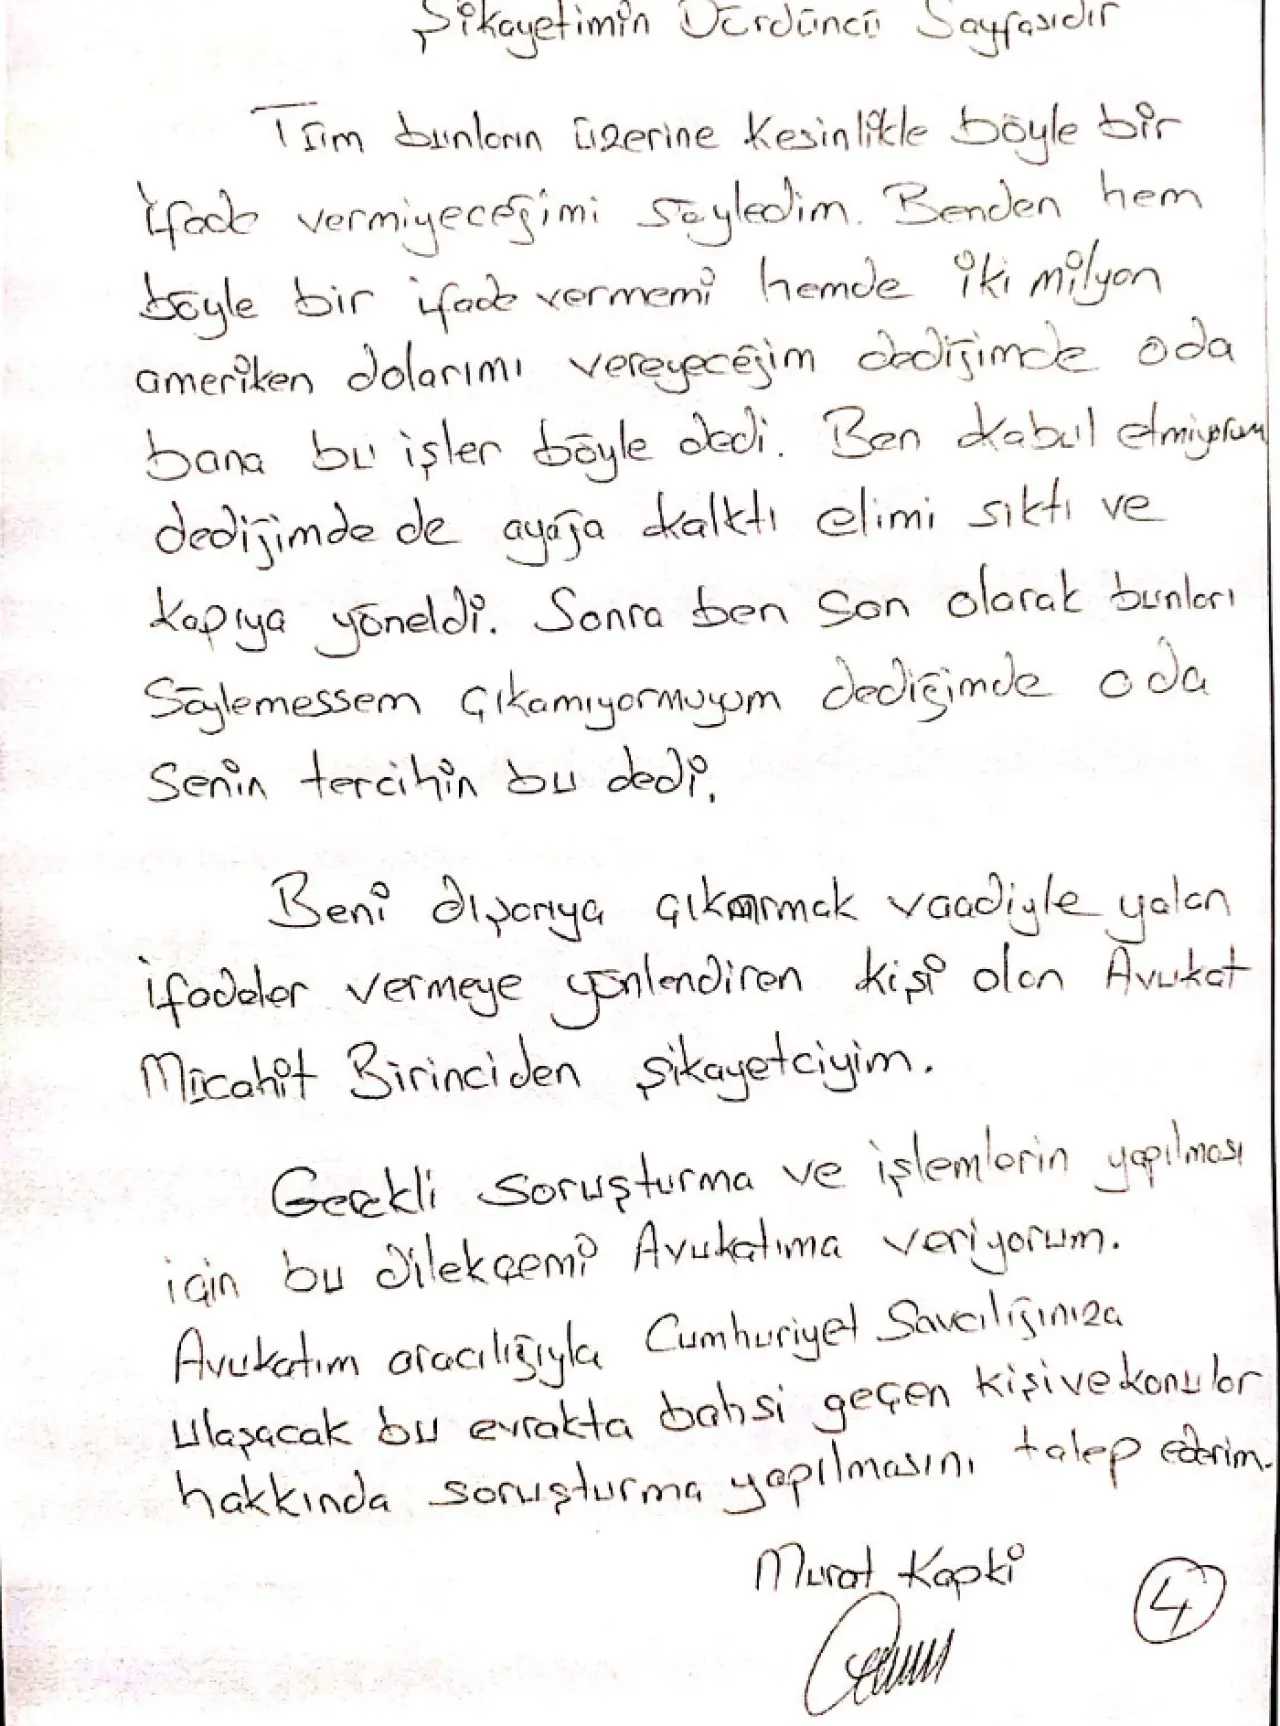 Şikayetimin Dördüncü Sayfasıdır
Tüm bunların üzerine kesinlikle böyle bir
ifade vermiyeceğimi söyledim. Benden hem
böyle bir ifade vermemi hemde iki milyon
ameriken dolarımı vereyeceğim dediğimde oda
bana bu işler böyle dedi. Ben kabul etmiyorum
dediğimde de ayağa kalktı elimi sıktı ve
kapıya yöneldi. Sonra ben son olarak bunları
Söylemessem çıkamıyormuyum dediğimde oda
Senin tercihin bu dedi.
Beni dışarıya çıkarmak vaadiyle yalan
ifadeler vermeye yönlendiren kişi olan Avukat
Mücahit Birinciden şikayetciyim.
Gerekli soruşturma ve işlemlerin yapılması
için bu dilekçemi Avukatıma veriyorum.
Avukatım aracılığıyla Cumhuriyet Savcılığınıza
ulaşacak bu evrakta bahsi geçen kişi ve konular
hakkında soruşturma yapılmasını talep ederim.
Murat Kapki
4